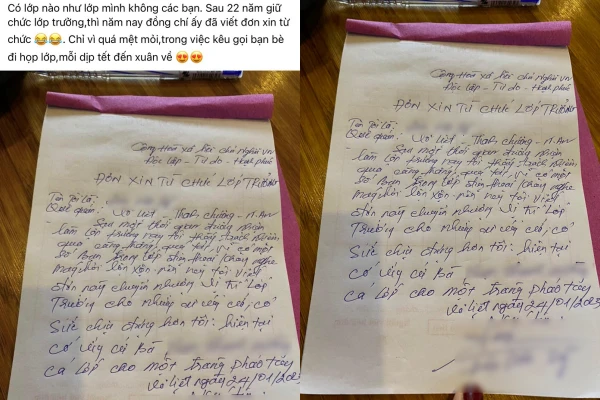 Có lớp nào như lớp mình không các bạn. Sau 22 năm giữ
chức lớp trưởng,thì năm nay đồng chí ấy đã viết đơn xin từ
chức 😂😂. Chỉ vì quá mệt mỏi,trong việc kêu gọi bạn bè
đi họp lớp,mỗi dịp tết đến xuân về 😍😍
Cộng Hoà xã hội chủ Nghĩa VN
Độc lập - Tự do - Hạnh phúc
ĐƠN XIN TỪ CHỨC LỚP TRƯỞNG
Tên Tôi là:
Quê quán: Võ Liệt - Thanh Chương - N.An
- Sau một thời gian đảm nhận
làm lớp trưởng nay tôi thấy trách nhiệm
quá căng thẳng, quá tải, vì có một
số bạn trong lớp điện thoại không nghe
máy, hỏi lộn xộn nên nay tôi viết
đơn này chuyển nhường vị trí Lớp
Trưởng cho những ai có
Sức chịu đựng hơn tôi: hiện tại
cả lớp cho một tràng pháo tay
Võ liệt ngày 24/01/2023
Cộng Hoà xã hội chủ Nghĩa VN
Độc lập - Tự do - Hạnh phúc
ĐƠN XIN TỪ CHỨC LỚP TRƯỞNG
Tên Tôi là:
Quê quán: Võ Liệt - Thanh Chương - N.An
- Sau một thời gian đảm nhận
làm lớp trưởng nay tôi thấy trách nhiệm
quá căng thẳng, quá tải, vì có một
số bạn trong lớp điện thoại không nghe
máy, hỏi lộn xộn nên nay tôi viết
đơn này chuyển nhường vị trí Lớp
Trưởng cho những ai có
Sức chịu đựng hơn tôi: hiện tại
cả lớp cho một tràng pháo tay
Võ liệt ngày 24/01/2023